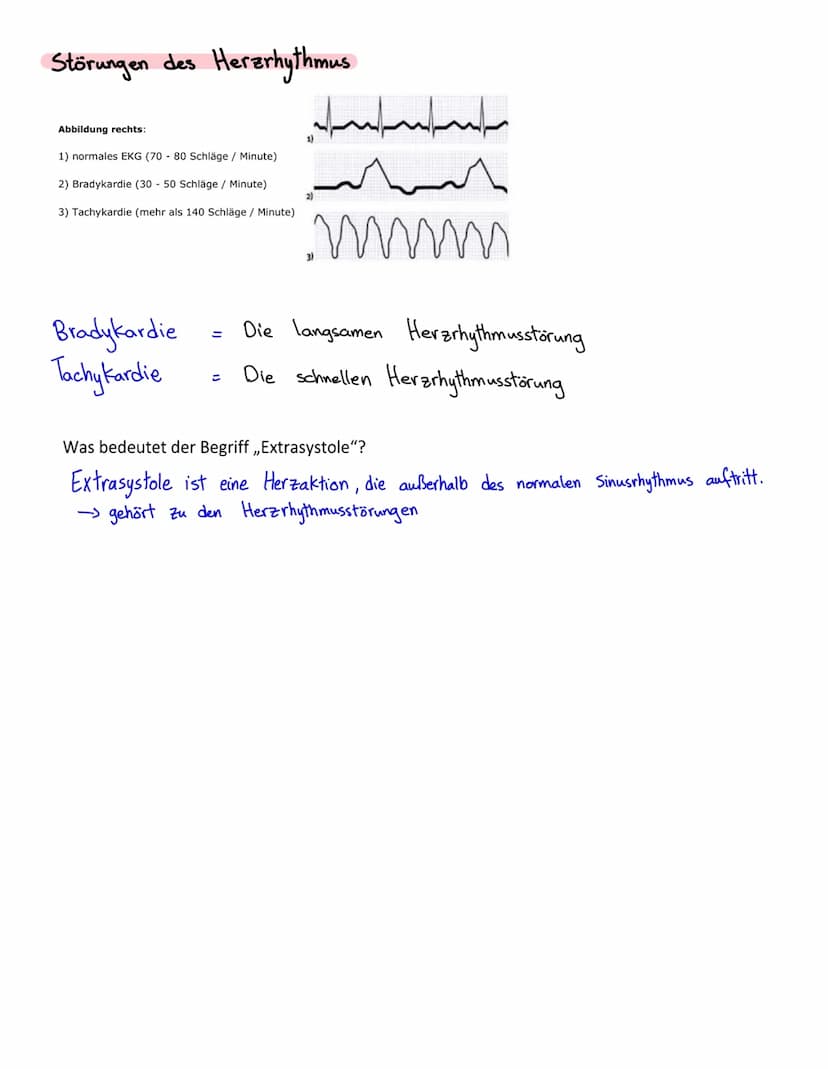 Störungen des Herzrhythmus
Abbildung rechts:
1) normales EKG (70 - 80 Schläge / Minute)
2) Bradykardie (30 - 50 Schläge / Minute)
3) Tachykardie (mehr als 140 Schläge / Minute)
1)
2)
3)
Bradykardie = Die langsamen Herzrhythmusstörung
Tachykardie = Die schnellen Herzrhythmusstörung
Was bedeutet der Begriff „Extrasystole“?
Extrasystole ist eine Herzaktion, die außerhalb des normalen Sinusrhythmus auftritt.
→ gehört zu den Herzrhythmusstörungen